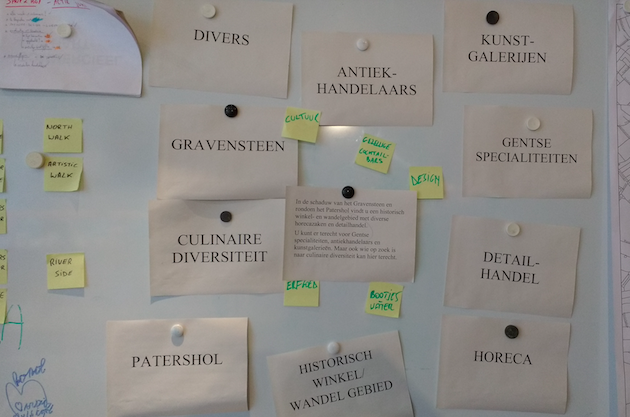 DIVERS
KUNST-
GALERIJEN
ANTIEK-
HANDELAARS
GRAVENSTEEN
CULTUUR
COCKTAIL-
BARS
DESIGN
GENTSE
SPECIALITEITEN
NORTH
WALK
ARTISTIC
WALK
RIVER
SIDE
CULINAIRE
DIVERSITEIT
In de schaduw van het Gravensteen en
rondom het Patershol vindt u een historisch
winkel- en wandelgebied met diverse
horecazaken en detailhandel.
U kunt er terecht voor Gentse
specialiteiten, antiekhandelaars en
kunstgalerieën. Maar ook wie op zoek is
naar culinaire diversiteit kan hier terecht.
DETAIL-
HANDEL
ERFGOED
BOOTJES
WATER
PATERSHOL
HISTORISCH
WINKEL/
WANDEL GEBIED
HORECA